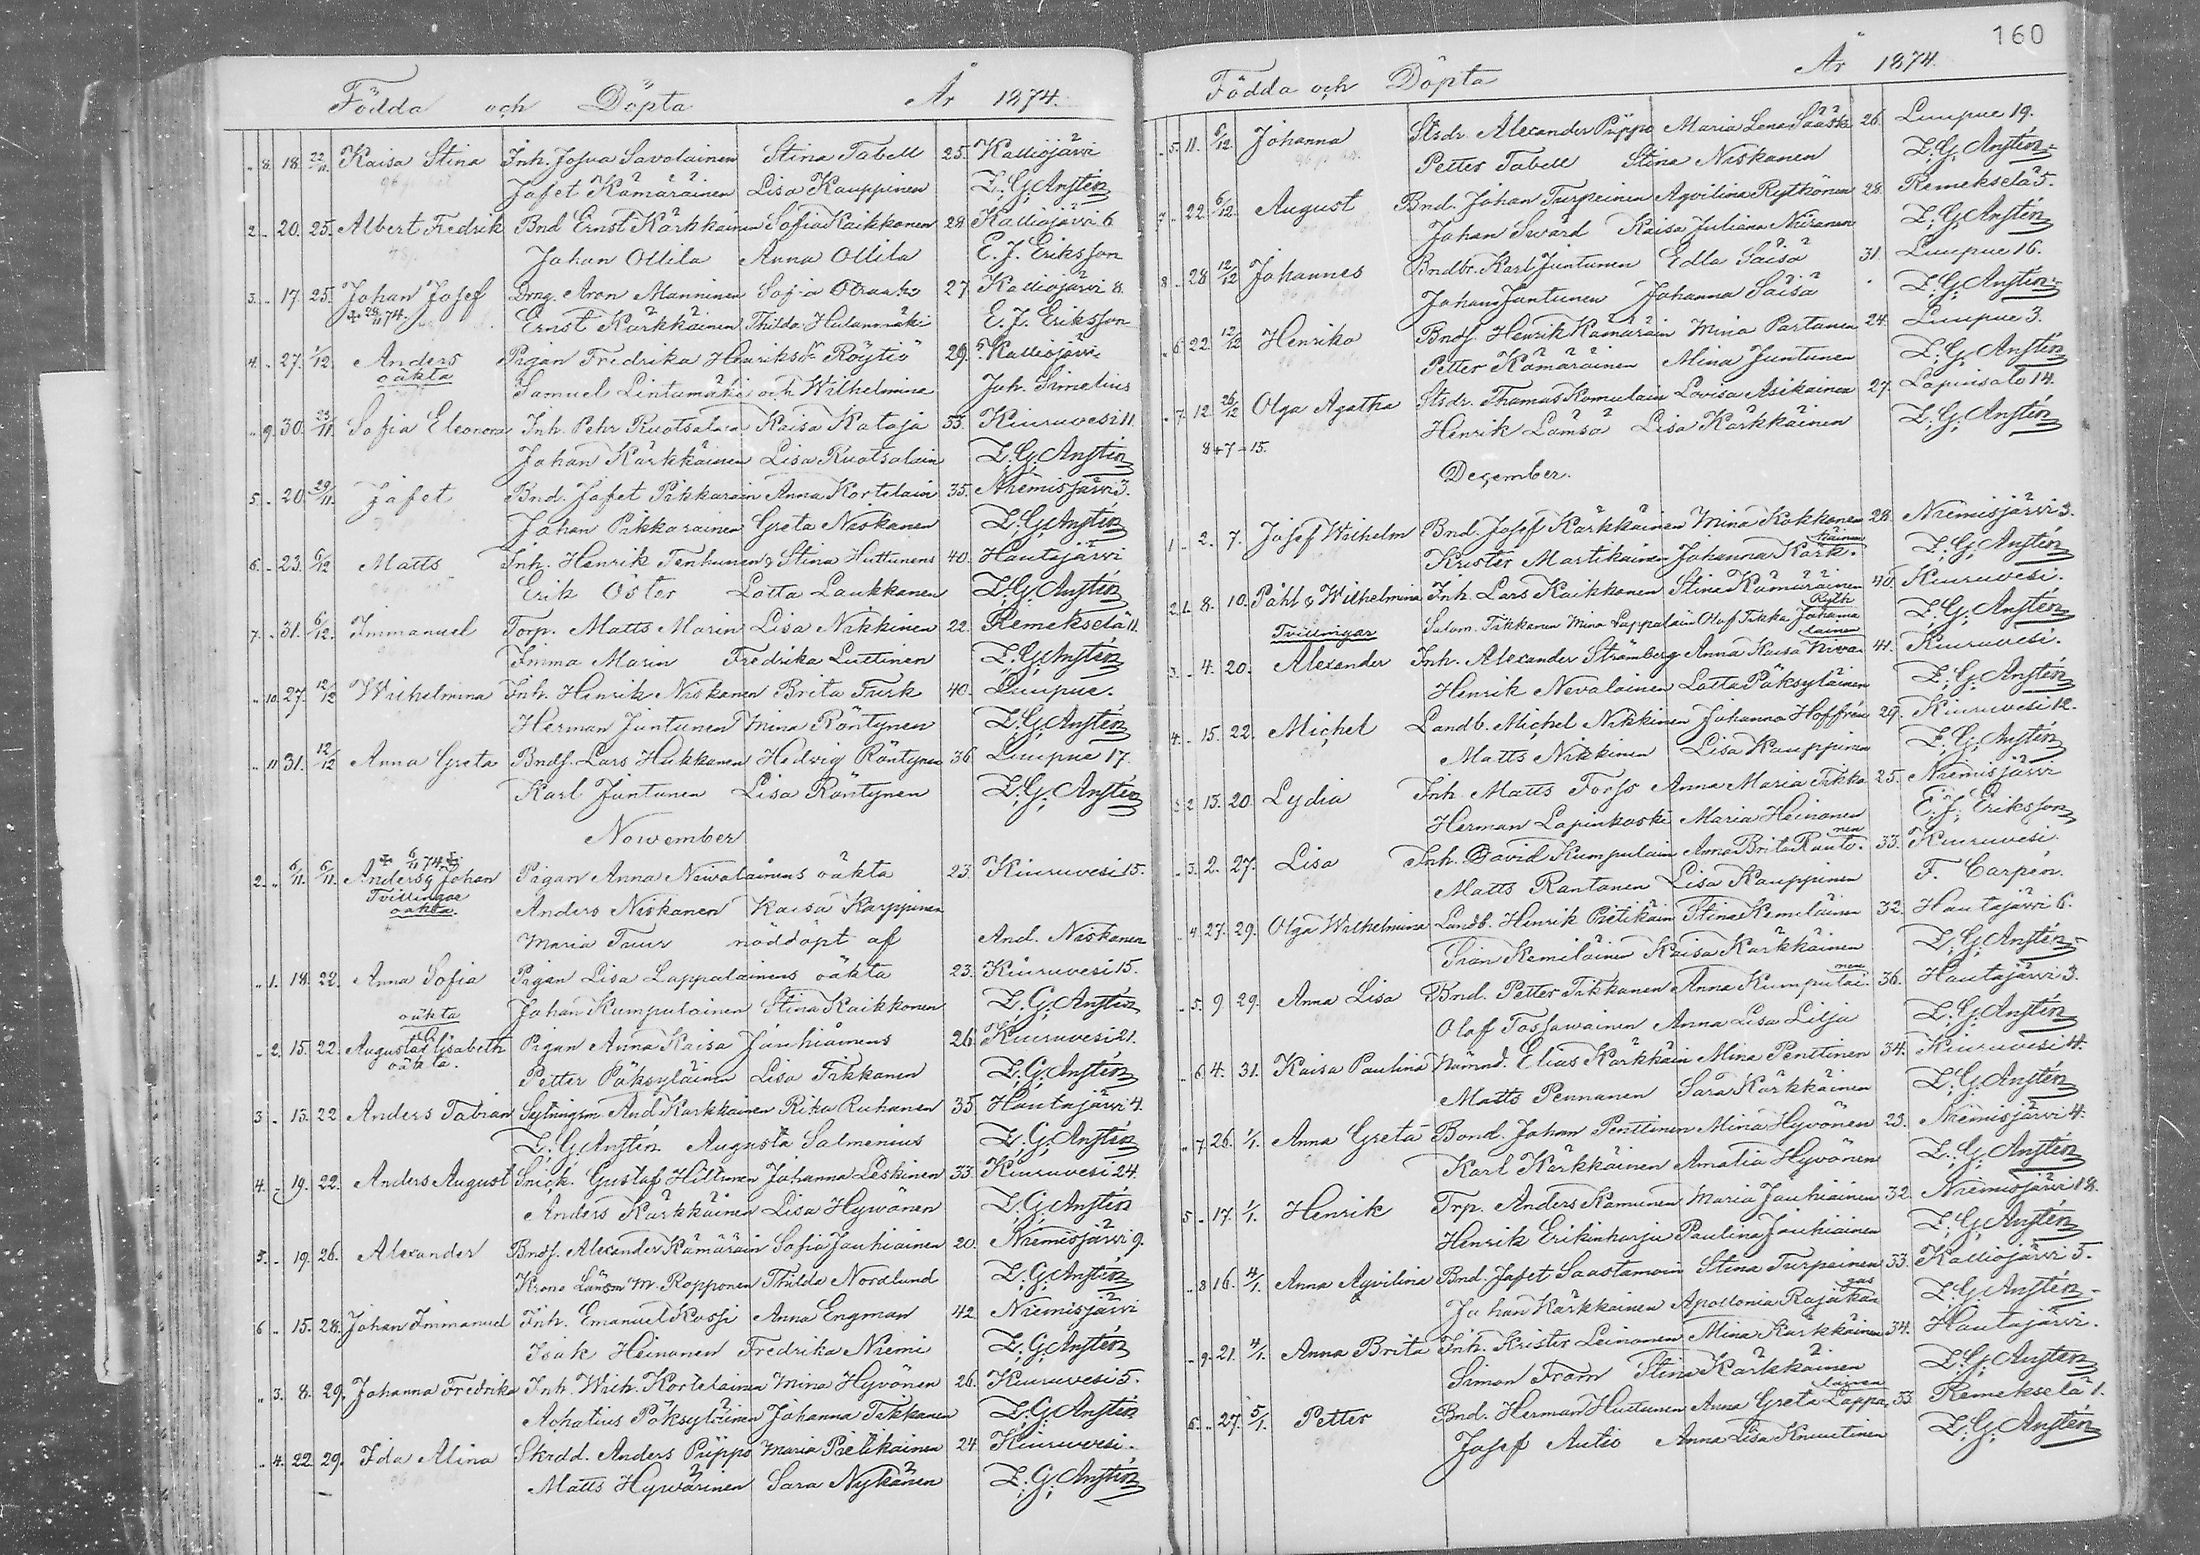 Födda och Döpta År 1874.
„ 8. 18. 22/11. Kaisa Stina Inh. Josua Savolainen Stina Tabell 25. Kalliojärvi
Jafet Kämäräinen Lisa Kauppinen Z. G. Anstén
2. „ 20. 25. Albert Fredrik Bnd Ernst Kärkkäinen Sofia Kaikkonen 28. Kalliojärvi 6
Johan Ollila Anna Ollila E. J. Eriksson
3. „ 17. 25. Johan Josef Drng. Aron Manninen Sofia 27. Kalliojärvi 8.
Ernst Kärkkäinen Thilda E. J. Eriksson
4. „ 27. 1/12. Anders Pigan Fredrika Henriksdr Röytiö 29. Kalliojärvi
oäkta Samuel Lintumäki och Wilhelmina Joh. Simelius
„ 9. 30. 23/11. Sofia Eleonora Inh. Pehr Ruotsalain Kaisa Kataja 33. Kiuruvesi 11.
Johan Kärkkäinen Lisa Ruotsalain Z. G. Anstén
5. „ 20. 29/11. Jafet Bnd. Jafet Pikkarain Anna Kortelain 35. Niemisjärvi 3.
Johan Pikkarainen Greta Niskanen Z. G. Anstén
6. „ 23. 6/12 Matts Inh. Henrik Tenhunen & Stina Huttunens 40. Hautajärvi
Erik Öster Lotta Laukkanen Z. G. Anstén
7. „ 31. 6/12. Immanuel Torp. Matts Marin Lisa Nikkinen 22. Remekselä 11.
Imma Marin Fredrika Luttinen Z. G. Anstén
„ 10. 27. 12/12 Wilhelmina Inh. Henrik Niskanen Brita Turk 40. Luupue.
Herman Juntunen Mina Röntynen Z. G. Anstén
„ 11 31. 12/12 Anna Greta Bndf. Lars Hukkanen Hedvig Röntynen 36 Luupue 17.
Karl Juntunen Lisa Röntynen Z. G. Anstén
November
2. „ 6/11. 6/11. Anders & Johan Pigan Anna Newalainens oäkta 23. Kiuruvesi 15.
Tvillingar oäkta. Anders Niskanen Kaisa Karppinen
Maria Tuur nöddöpt af And. Niskanen
„ 1. 18. 22. Anna Sofia Pigan Lisa Lappalainens oäkta 23. Kiuruvesi 15.
oäkta Johan Kumpulainen Stina Kaikkonen Z. G. Anstén
„ 2. 15. 22. Augusta Elisabeth Pigan Anna Kaisa Jauhiainens 26. Kiuruvesi 21.
oäkta. Petter Päksyläinen Lisa Tikkanen Z. G. Anstén
3 „ 13. 22 Anders Fabian And Karkkäinen Rika Ruhanen 35. Hautajärvi 4.
Z. G. Anstén Augusta Salmenius Z. G. Anstén
4. „ 19. 22. Anders August Snick. Gustaf Hiltunen Johanna Leskinen 33. Kiuruvesi 24.
Anders Kärkkäinen Lisa Hyvönen Z. G. Anstén
5. „ 19. 26. Alexander Bndf. Alexander Kämäräin Sofia Jauhiainen 20. Niemisjärvi 9.
Krono Länsm M. Ropponen Thilda Nordlund Z. G. Anstén
6 „ 15. 28. Johan Immanuel Inh. Emanuel Kossi Anna Engman 42 Niemisjärvi
Isak Heinonen Fredrika Niemi Z. G. Anstén
„ 3. 8. 29. Johanna Fredrika Inh. Wilh. Kortelainen Mina Hyvönen 26. Kiuruvesi 5.
Achatius Päksyläinen Johanna Tikkanen Z. G. Anstén
„ 4. 22. 29. Ida Alina Skrdd. Anders Piippo Maria Pietikäinen 24. Kiuruvesi.
Matts Hyvärinen Sara Nykänen Z. G. Anstén
160
Födda och Döpta År 1874.
„ 5. 11. 6/12. Johanna Stsdr. Alexander Piippo Maria Lena Sääski 26. Luupue 19.
Petter Tabell Stina Niskanen Z. G. Anstén
7 „ 22. 6/12. August Bnd. Johan Turpeinen Aqvilina Rytkönen 28. Remekselä 5.
Johan Swärd Kaisa Juliana Niiranen Z. G. Anstén
8 „ 28 12/12 Johannes Bndbr. Karl Juntunen Edla Säisä 31. Luupue 16.
Johan Juntunen Johanna Säisä Z. G. Anstén
„ 6. 22. 12/12 Henrika Bndf. Henrik Kämäräin Mina Partanen 24. Luupue 3.
Petter Kämäräinen Mina Juntunen Z. G. Anstén
„ 7. 12. 26/12 Olga Agatha Stsdr. Thomas Komulain Lovisa Asikainen 27. Lapinsalo 14.
Henrik Lämsä Lisa Kärkkäinen Z. G. Anstén
8 + 7 = 15.
December.
1 „ 2. 7. Josef Wilhelm Bnd. Josef Kärkkäinen Mina Kokkonen 28. Niemisjärvi 3.
Krister Martikainen Johanna Kärk-käinen Z. G. Anstén
2. 1. 8. 10. Påhl & Wilhelmina Inh. Lars Kaikkonen Stina Kämäräinen 40. Kiuruvesi.
Tvillingar Salom. Tikkanen Mina Lappalain Olof Tikka Johanna Rytk Z. G. Anstén
3. „ 4. 20. Alexander Inh. Alexander Strömberg Anna Kaisa Niva-lainen 41. Kiuruvesi.
Henrik Nevalainen Lotta Päksyläinen Z. G. Anstén
4. „ 15. 22. Michel Landb. Michel Nikkinen Johanna Hoffrén 29. Kiuruvesi 12.
Matts Nikkinen Lisa Kauppinen Z. G. Anstén
„ 2 13. 20. Lydia Inh. Matts Forss Anna Maria Tikka 25. Niemisjärvi
Herman Lapinkoski Maria Heinonen E. J. Eriksson
„ 3. 2. 27. Lisa Inh. David Kumpulain Anna Brita Ranta-nen 33. Kiuruvesi
Matts Rantanen Lisa Kauppinen F. Carpén.
„ 4 27. 29. Olga Wilhelmina Landb. Henrik Pietikäin Stina Kemiläinen 32. Hautajärvi 6.
Kemiläinen Kaisa Karkkäinen Z. G. Anstén
„ 5. 9 29. Anna Lisa Bnd. Petter Tikkanen Anna Kumpulai-nen 36. Hautajärvi 3.
Olof Tossawainen Anna Lisa Lilja Z. G. Anstén
„ 6. 4. 31. Kaisa Paulina Nämnd. Elias Kärkkäin Mina Penttinen 34. Kiuruvesi 4.
Matts Pennanen Sara Kärkkäinen Z. G. Anstén
„ 7. 26. 1/1. Anna Greta Bond. Johan Penttinen Mina Hyvönen 23. Niemisjärvi 4.
Karl Kärkkäinen Amalia Hyvönen Z. G. Anstén
5 „ 17. 1/1. Henrik Trp. Anders Kamunen Maria Jauhiainen 32. Niemisjärvi 18.
Henrik Erikinharju Paulina Jauhiainen Z. G. Anstén
„ 8 16. 4/1. Anna Aqvilina Bnd. Jafet Saastamoin Stina Turpeinen 33. Kalliojärvi 5.
Johan Kärkkainen Apollonia Rajakangas Z. G. Anstén
„ 9. 21. 4/1. Anna Brita Inh. Krister Leinonen Mina Kärkkäinen 34. Hautajärvi.
Simon From Stina Kärkkäinen Z. G. Anstén
6. „ 27. 5/1. Petter Bnd. Herman Huttunen Anna Greta Lappa-lainen 33 Remekselä 1.
Josef Autio Anna Lisa Knuutinen Z. G. Anstén